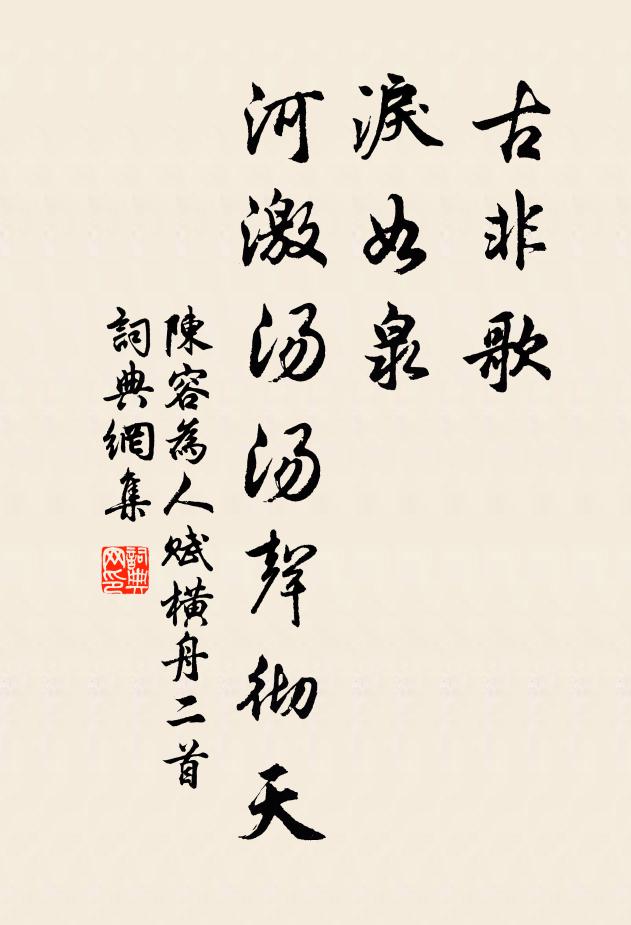 古非歌
淚如泉
河激湯湯聲彻天
陳容為人賦橫舟二首
詞典網集
詞典网印